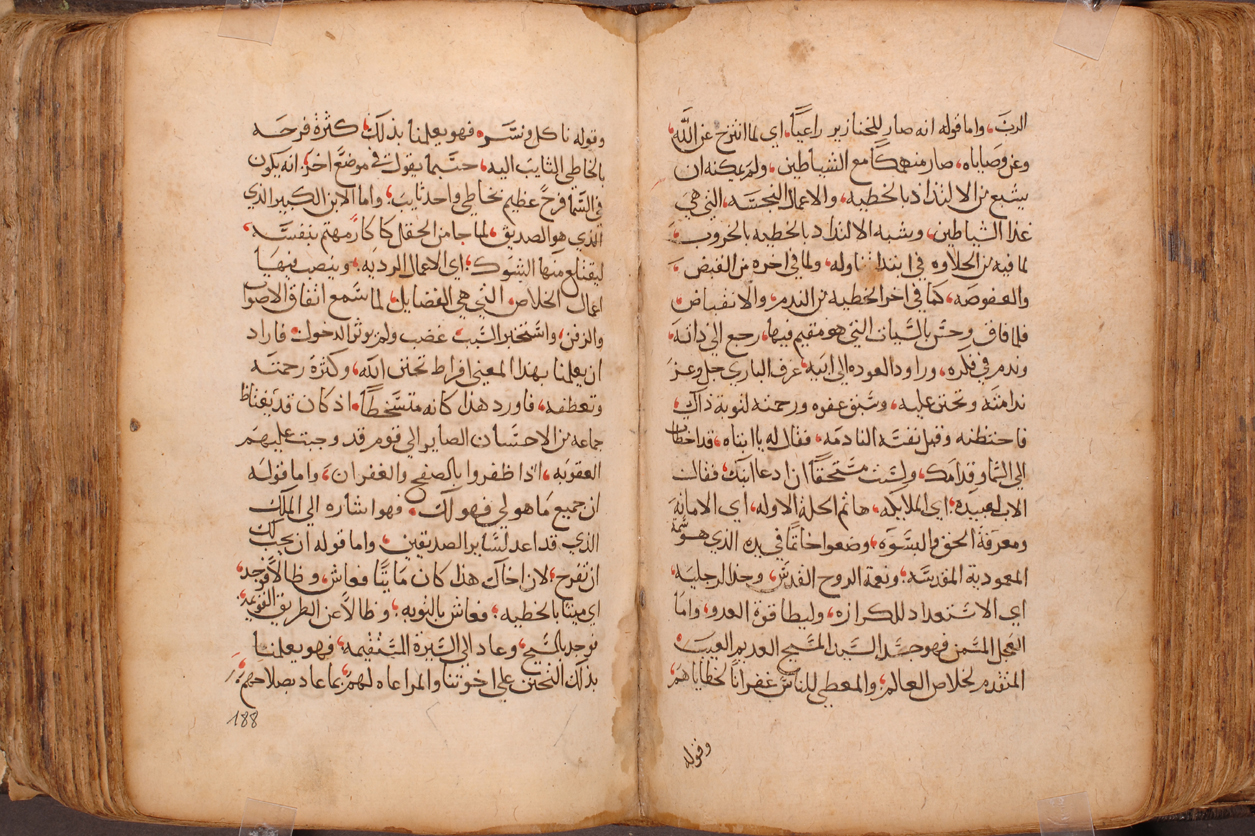 الرب، واما قوله انه صار للخنازير راعياً، اي لما انتزح عن الله،
وعن وصاياه، صار منهمكاً مع الشياطين، ولم يمكنه ان
يشبع من الالتذاذ بالخطيه، والاعمال النجسه، التي هي
غذا الشياطين، وشبه الالتذاذ بالخطيه بالخروب،
لما فيه من الحلاوه في ابتدا تناوله، ولما في اخره من القبض،
والعفوصه، كما في اخر الخطيه من الندم، والانقباض،
فلما فاق وحسّ بالسبات التي هو مقيم فيها، رجع الى ذاته،
وندم في فكره، وراود العوده الى ابيه، عرف الباري جل وعز
ندامته وتحنن عليه، وسبق عفوه ورحمته لتوبة ذاك،
فاحتضنه وقبل نفسه النادمه، فقال له يا ابتاه، قد اخطات
الى السما وقدامك، ولست مستحقاً ان ادعا ابنك، فقال
الاب لعبيده، اي الملايكه، هاتم الحلة الاوله، اي الامانه
ومعرفة الحق والبنوه، وضعوا خاتماً في يده الذي هو سمة
المعموديه المقدسه، ونعمة الروح القدس، وحذا لرجليه،
اي الاستعداد للكرازه، وليطا قوة العدو، واما
العجل المسمن فهو جسد السيد المسيح العديم العيب،
المتقدم لخلاص العالم، والمعطي للناس غفراناً لخطاياهم،
وقوله
وقوله ناكل ونسر، فهو يعلمنا بذلك، كثرة فرحه
بالخاطي التايب اليه، حسبما يقول في موضع اخر، انه يكون
في السما فرح عظيم بخاطي واحد تايب، واما الابن الكبير الذي
الذي هو الصديق، لما جا من الحقل كا كارّ مهتم بنفسه،
ليقتلع منها الشوك، اي الاعمال الرديه، وينصب فيها
اعمال الخلاص، التي هي الفضايل، لما سمع اتفاق الاصوات
والزفن، واستخبر السبب غضب ولم يوثر الدخول، فاراد
ان يعلمنا بهذا المعنى افراط تحنن الله، وكثرة رحمته
وتعطفه، فاورد هذا كانه متسخطاً، اذ كان قد يغتاظ
جماعه من الاحسان الصاير الى قوم قد وجبت عليهم
العقوبه، اذا ظفروا بالصفح والغفران، واما قوله
ان جميع ما هو لي فهو لك، فهو اشاره الى الملك
الذي قد اعد لساير الصديقين، واما قوله ان يجب لك
ان تفرح، لان اخاك هذا كان ماتياً فعاش، وضالاً فوجد،
اي ميتا بالخطيه، فعاش بالتوبه، وضالاً عن الطريق القويمه،
فوجد بالمسيح، وعاد الى السيرة المستقيمه، فهو يعلمنا
بذلك التحنن على اخوتنا والمراعاه لهم، بما عاد بصلاحهم،
188